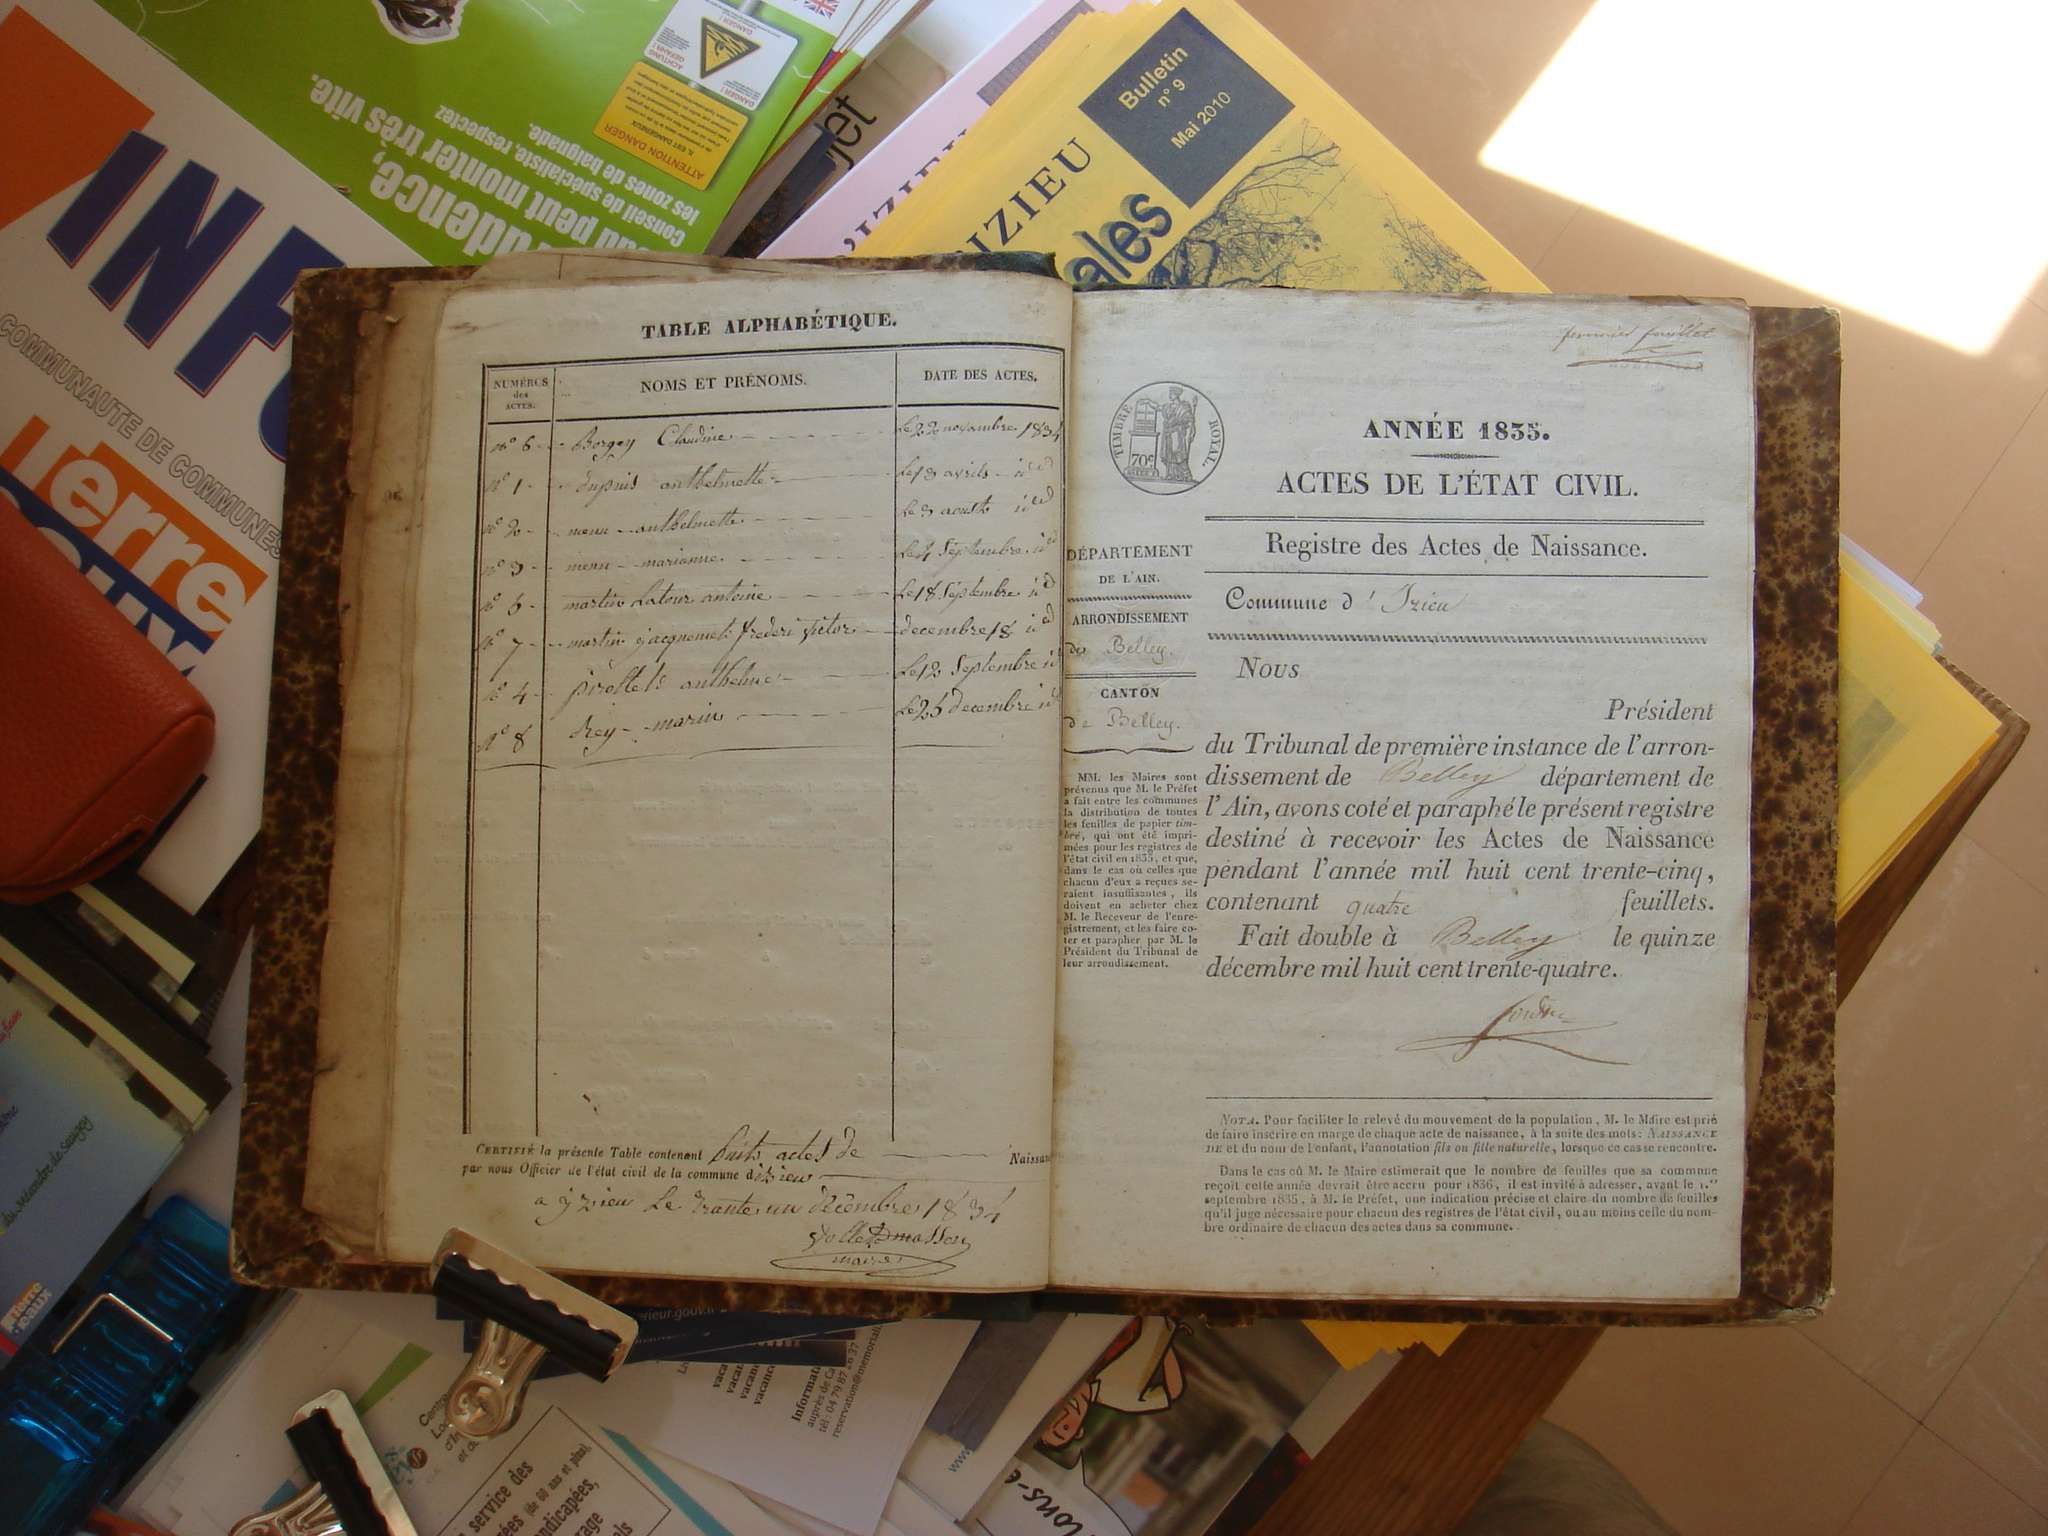 INFO
COMMUNAUTE DE COMMUNES
Terre
udence,
eau peut monter très vite.
conseil de spécialiste, respectez
les zones de baignade.
ATTENTION DANGER
IL EST DANGEREUX
DANGER !
ACHTUNG
GEFAHR !
jet
D'IZIEU
Bulletin
n° 9
Mai 2010
NZIEU
ales
TABLE ALPHABÉTIQUE.
NUMÉROS
des
ACTES.
NOMS ET PRÉNOMS.
DATE DES ACTES.
n° 6 Borgey Claudine Le 22 novembre 1834
n° 1 dupuis anthelmette Le 18 avrils id
n° 2 menu anthelmette Le 3 aoust id
n° 3 menu marianne Le 4 Septembre id
n° 5 martin Latour antoine Le 18 Septembre id
n° 7 martin jacquemet frederi victor decembre 18 id
n° 4 anthelme Le 12 Septembre id
n° 8 Rey marin Le 25 decembre id
CERTIFIÉ la présente Table contenant huits actes de Naissan
par nous Officier de l'état civil de la commune d'izieu
a yzieu Le trante un décembre 1834
maire
premier feuillet
TIMBRE ROYAL.
70c
ANNÉE 1835.
ACTES DE L'ÉTAT CIVIL.
Registre des Actes de Naissance.
DÉPARTEMENT
DE L'AIN.
ARRONDISSEMENT
de Belley.
CANTON
de Belley.
MM. les Maires sont
prévenus que M. le Préfet
a fait entre les communes
la distribution de toutes
les feuilles de papier tim-
bré, qui ont été impri-
mées pour les registres de
l'état civil en 1835, et que,
dans le cas où celles que
chacun d'eux a reçues se-
raient insuffisantes, ils
doivent en acheter chez
M. le Receveur de l'enre-
gistrement, et les faire co-
ter et parapher par M. le
Président du Tribunal de
leur arrondissement.
Commune d'Izieu
Nous
Président
du Tribunal de première instance de l'arron-
dissement de Belley département de
l'Ain, avons coté et paraphé le présent registre
destiné à recevoir les Actes de Naissance
pendant l'année mil huit cent trente-cinq,
contenant quatre feuillets.
Fait double à Belley le quinze
décembre mil huit cent trente-quatre.
NOTA. Pour faciliter le relevé du mouvement de la population, M. le Maire est prié
de faire inscrire en marge de chaque acte de naissance, à la suite des mots: NAISSANCE
DE et du nom de l'enfant, l'annotation fils ou fille naturelle, lorsque ce cas se rencontre.
Dans le cas où M. le Maire estimerait que le nombre de feuilles que sa commune
reçoit cette année devrait être accru pour 1836, il est invité à adresser, avant le 1.er
septembre 1835, à M. le Préfet, une indication précise et claire du nombre de feuilles
qu'il juge nécessaire pour chacun des registres de l'état civil, ou au moins celle du nom-
bre ordinaire de chacun des actes dans sa commune.
erieur.gouv.f
vacan
vacan
vacance
Informati
auprès de Ca
tél : 04 79 87 26 37
reservation@memorial
www.
Centre
Loc
d'In
et de
service des
ées (de 60 ans et plus),
ndicapées,
rage
els